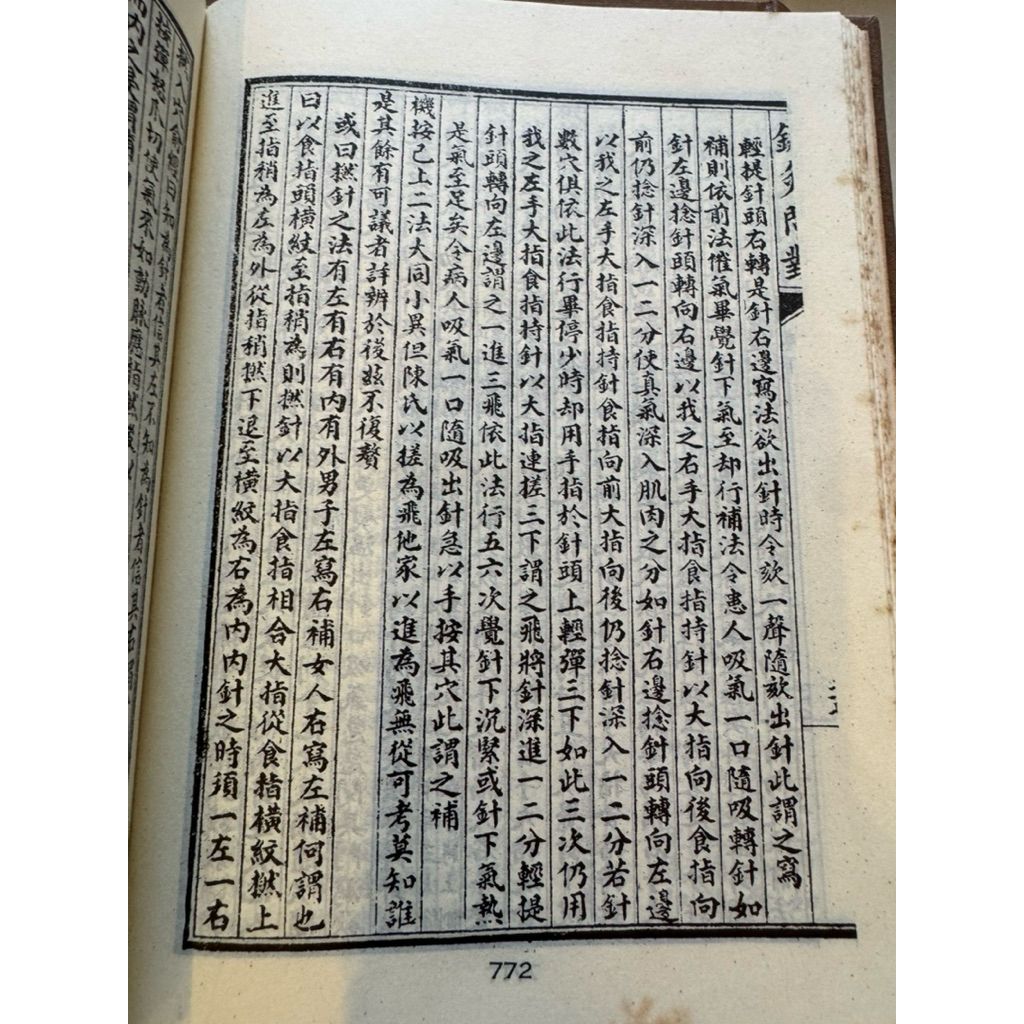 針灸問對
輕提針頭右轉是針右邊寫法欲出針時令欬一聲隨欬出針此謂之寫
補則依前法催氣畢覺針下氣至却行補法令患人吸氣一口隨吸轉針如
針左邊捻針頭轉向右邊以我之右手大指食指持針以大指向後食指向
前仍捻針深入一二分使真氣深入肌肉之分如針右邊捻針頭轉向左邊
以我之左手大指食指持針食指向前大指向後仍捻針深入一二分若針
數穴俱依此法行畢停少時却用手指於針頭上輕彈三下如此三次仍用
我之左手大指食指持針以大指連搓三下謂之飛將針深進一二分輕提
針頭轉向左邊謂之一進三飛依此法行五六次覺針下沉緊或針下氣熱
是氣至足矣令病人吸氣一口隨吸出針急以手按其穴此謂之補
機按已上二法大同小異但陳氏以搓為飛他家以進為飛無從可考莫知誰
是其餘有可議者詳辨於後玆不復贅
或曰撚針之法有左有右有內有外男子左寫右補女人右寫左補何謂也
曰以食指頭橫紋至指稍為則撚針以大指食指相合大指從食指橫紋撚上
進至指稍為左為外從指稍撚下退至橫紋為右為內內針之時須一左一右
772